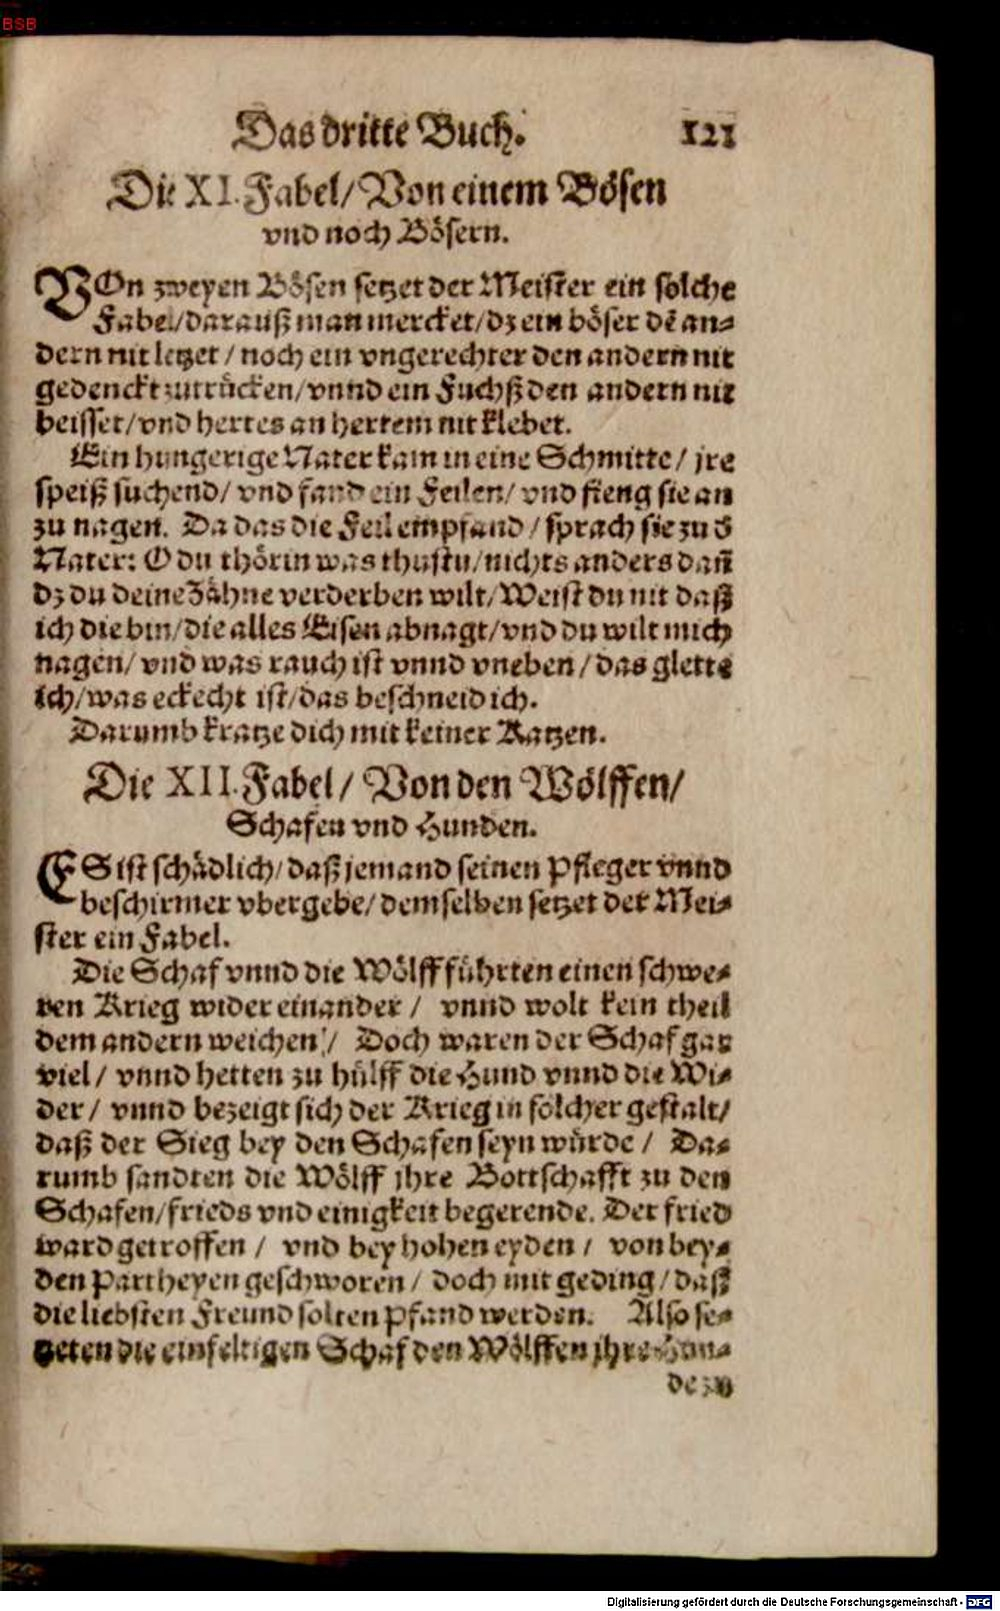 BSB
Das dritte Buch. 121
Die XI. Fabel/ Von einem Bösen
vnd noch Bösern.
VOn zweyen Bösen setzet der Meister ein solche
Fabel/ darauß man mercket/ dz ein böser dē an-
dern nit letzet / noch ein vngerechter den andern nit
gedenckt zutrücken/ vnnd ein Fuchß den andern nit
beisset/ vnd hertes an hertem nit klebet.
Ein hungerige Nater kam in eine Schmitte/ jre
speiß suchend/ vnd fand ein Feilen/ vnd fieng sie an
zu nagen. Da das die Feil empfand / sprach sie zu d̕
Nater: O du thörin was thustu/ nichts anders dañ
dz du deine Zähne verderben wilt/ Weist du nit daß
ich die bin/ die alles Eisen abnagt/ vnd du wilt mich
nagen/ vnd was rauch ist vnnd vneben / das glette
ich/ was eckecht ist/ das beschneid ich.
Darumb kratze dich mit keiner Katzen.
Die XII. Fabel / Von den Wölffen/
Schafen vnd Hunden.
ES ist schädlich/ daß jemand seinen Pfleger vnnd
beschirmer vbergebe/ demselben setzet der Mei-
ster ein Fabel.
Die Schaf vnnd die Wölff führten einen schwe-
ren Krieg wider einander / vnnd wolt kein theil
dem andern weichen / Doch waren der Schaf gar
viel / vnnd hetten zu hülff die Hund vnnd die Wi-
der / vnnd bezeigt sich der Krieg in solcher gestalt/
daß der Sieg bey den Schafen seyn würde / Da-
rumb sandten die Wölff jhre Bottschafft zu den
Schafen/ frieds vnd einigkeit begerende. Der fried
ward getroffen / vnd bey hohen eyden / von bey-
den Partheyen geschworen / doch mit geding / daß
die liebsten Freund solten Pfand werden. Also se-
tzeten die einfeltigen Schaf den Wölffen jhre Hun-
de zu
Digitalisierung gefördert durch die Deutsche Forschungsgemeinschaft - DFG